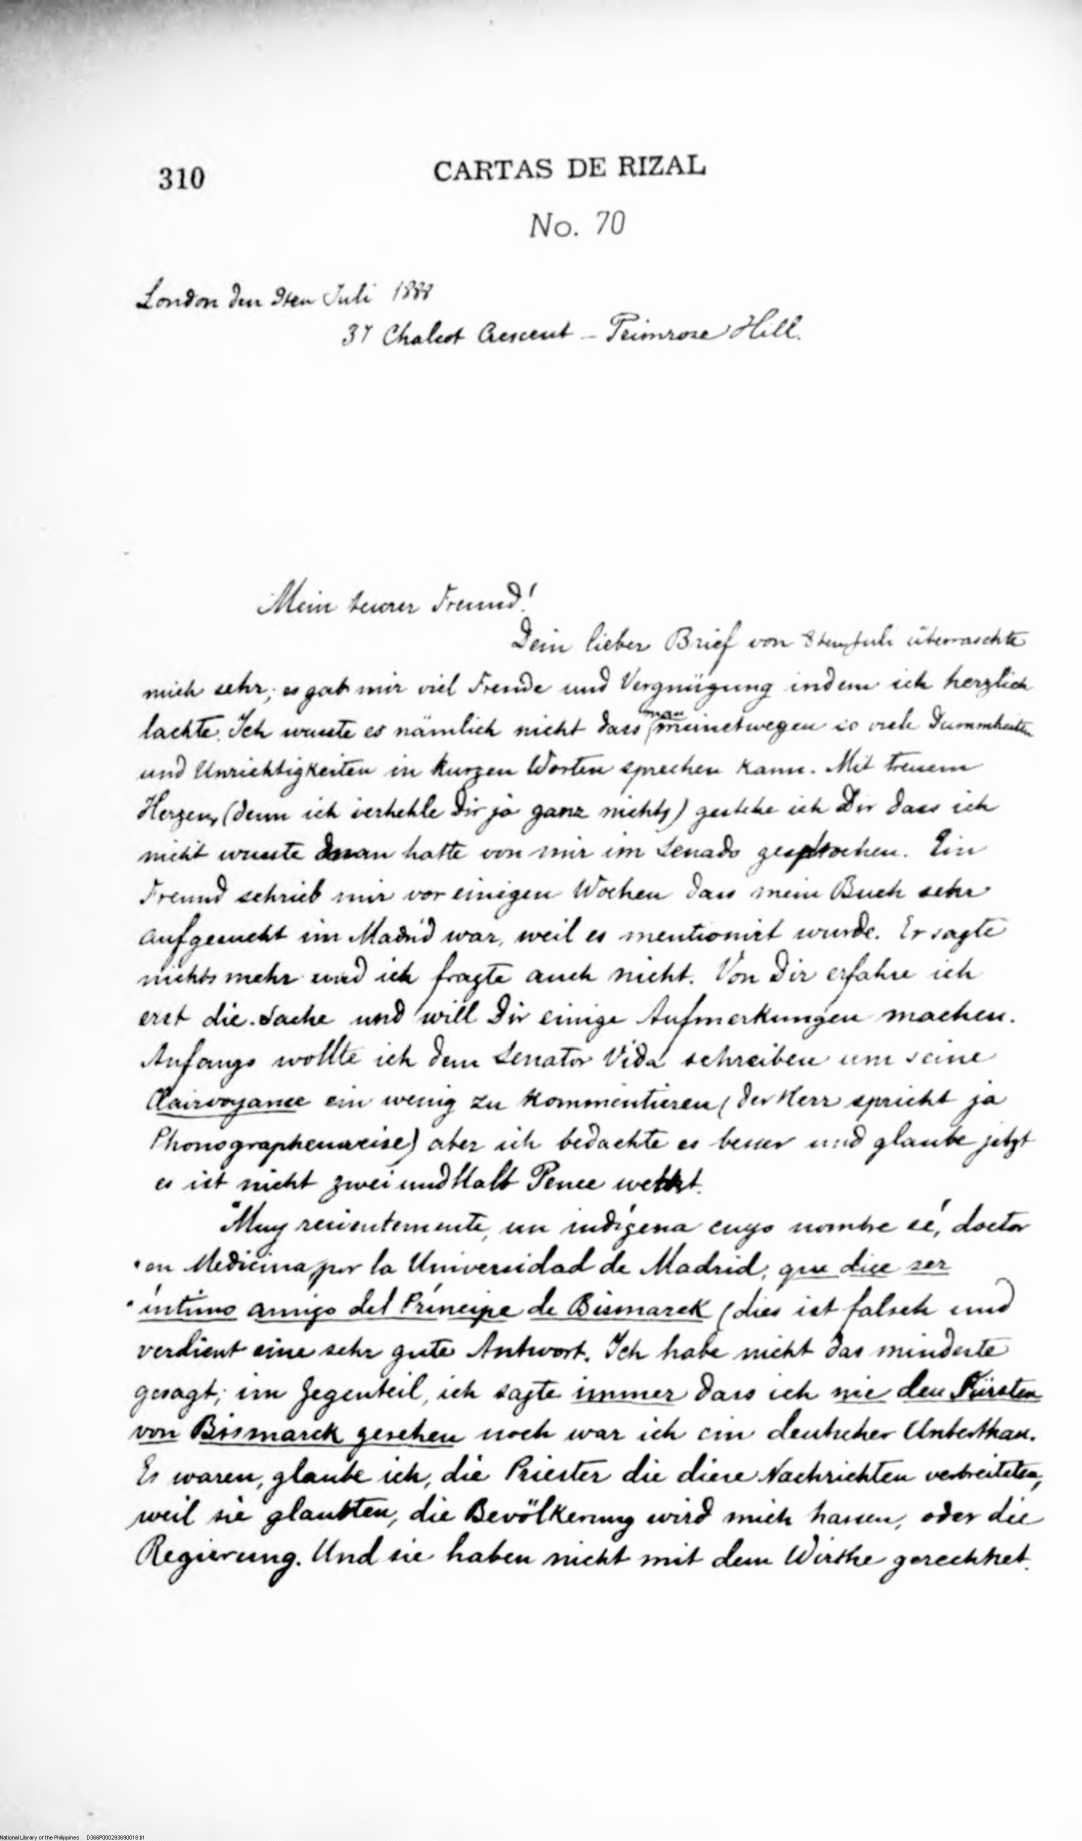 310 CARTAS DE RIZAL
No. 70
London den 9ten Juli 1888
37 Chalcot Crescent – Primrose Hill.
Mein teurer Freund!
Dein lieber Brief von 8ten Juli überraschte
mich sehr; es gab mir viel Freude und Vergnügung indem ich herzlich
lachte. Ich wusste es nämlich nicht dass man meinetwegen so viele Dummheiten
und Unrichtigkeiten in kurzen Worten sprechen kann. Mit treuem
Herzen, (denn ich verhehle Dir ja ganz nichts) gestehe ich Dir dass ich
nicht wusste man hatte von mir im Senado gesprochen. Ein
Freund schrieb mir vor einigen Wochen dass mein Buch sehr
aufgesucht im Madrid war, weil es mentionirt wurde. Er sagte
nichts mehr und ich fragte auch nicht. Von Dir erfahre ich
erst die Sache und will Dir einige Aufmerkungen machen.
Anfangs wollte ich dem Senator Vida schreiben um seine
Clairvoyance ein wenig zu kommentieren (der Herr spricht ja
Phonographenweise) aber ich bedachte es besser und glaube jetzt
es ist nicht zwei und Halb Pence wert.
"Muy recientemente, un indígena cuyo nombre sé, doctor
"en Medicina por la Universidad de Madrid, que dice ser
"íntimo amigo del Príncipe de Bismarck (dies ist falsch und
verdient eine sehr gute Antwort. Ich habe nicht das mindeste
gesagt; im Gegenteil, ich sagte immer dass ich nie den Fürsten
von Bismarck gesehen noch war ich ein deutscher Unterthan.
Es waren, glaube ich, die Priester die diese Nachrichten verbreiteten,
weil sie glaubten, die Bevölkerung wird mich hassen, oder die
Regierung. Und sie haben nicht mit dem Wirthe gerechnet.
National Library of the Philippines